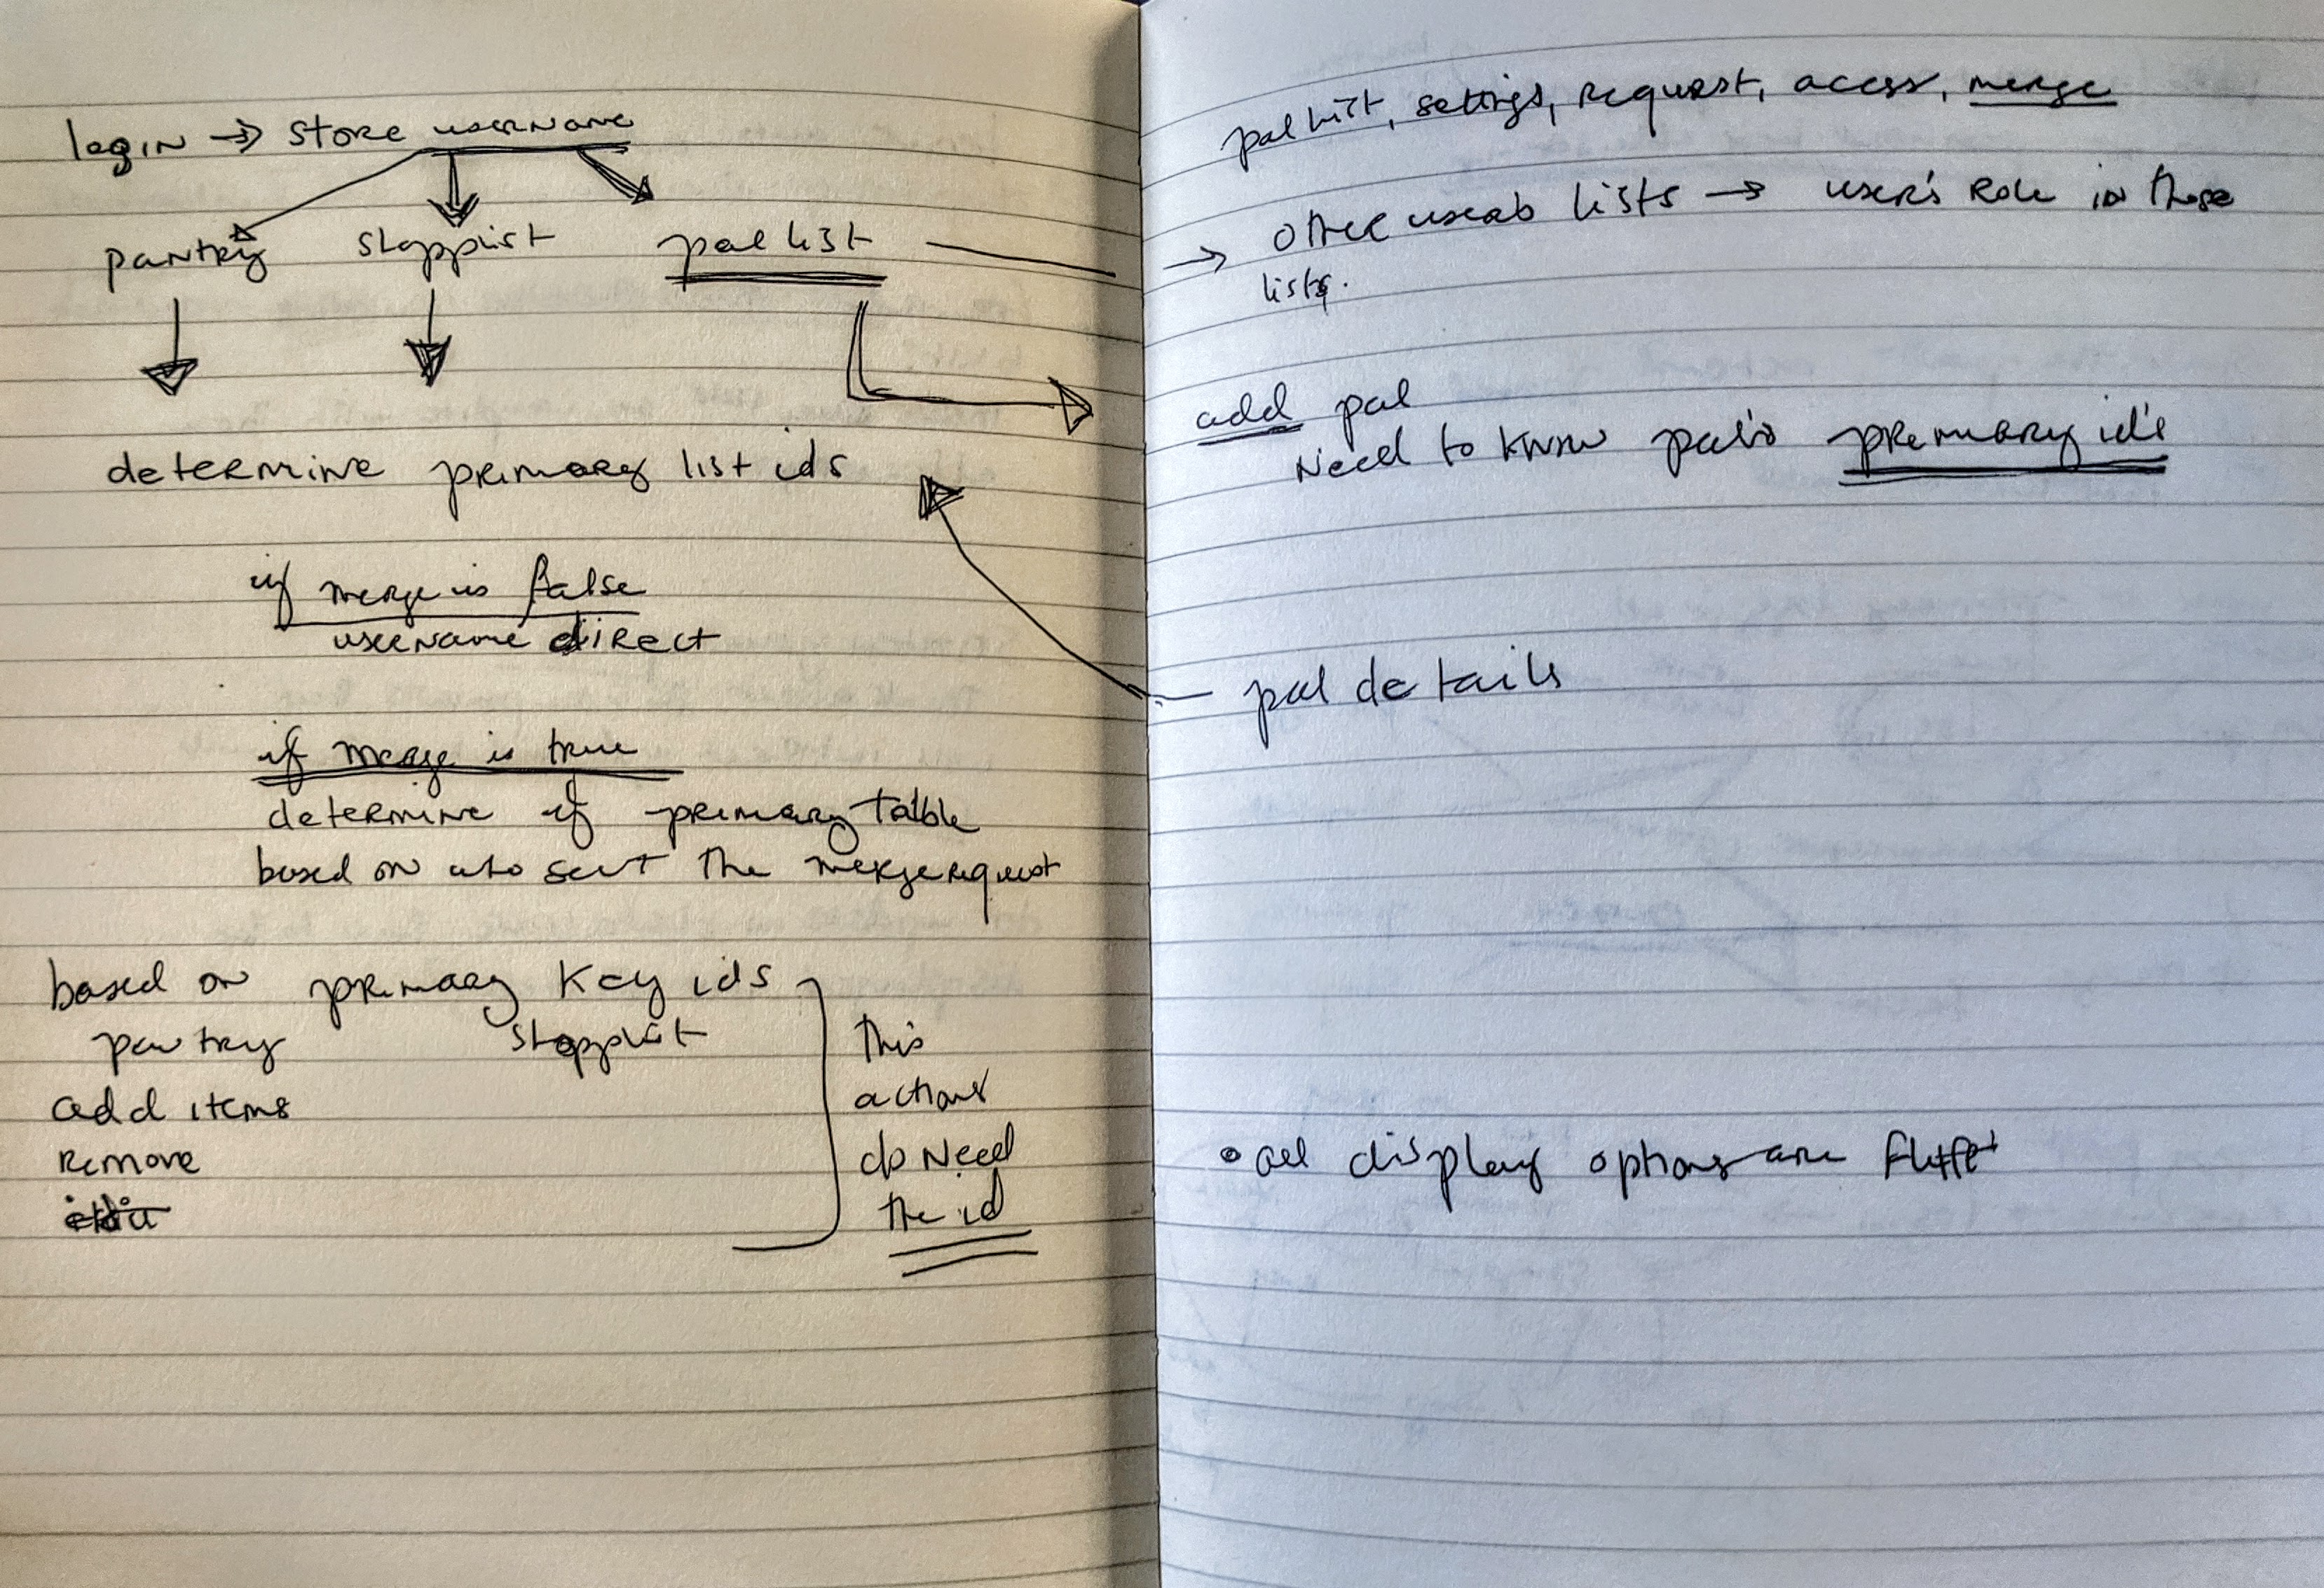 login → store username
pantry shopplist pal list
determine primary list ids
if merge is false
username direct
if merge is true
determine if primary table
based on who sent the merge request
based on primary key ids
pantry shopplist
add items
remove
this
actions
do need
the id
pal list, settings, request, access, merge
→ other users lists → user's role in those
lists.
add pal
need to know pal's primary id's
pal details
• all display options are